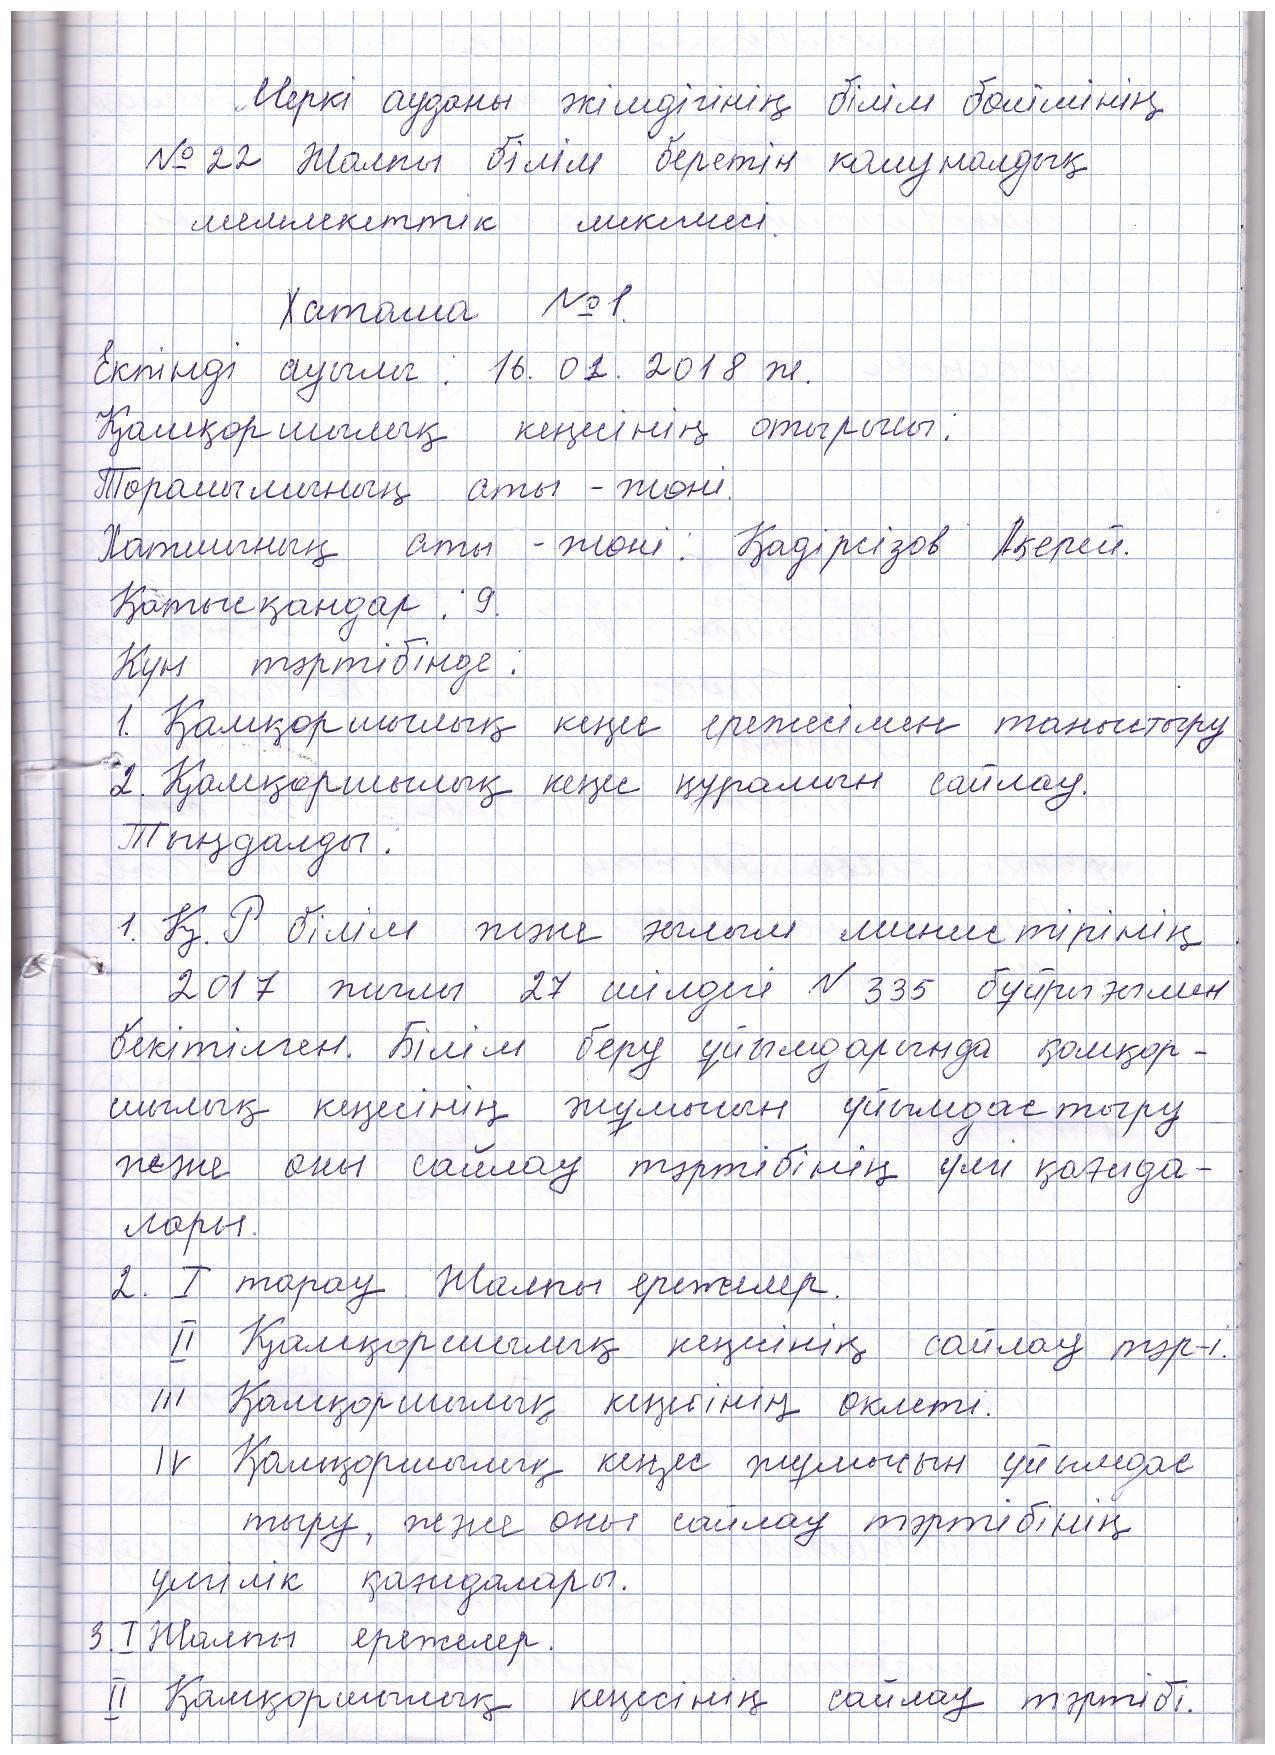 Меркі ауданы әкімдігінің білім бөлімінің
№ 22 Жалпы білім беретін комуналдық
мемлекеттік мекемесі.
Хаттама №1.
Екпінді ауылы: 16. 01. 2018 ж.
Қамқоршылық кеңесінің отырысы:
Төрашымының аты-жөні.
Хатшының аты-жөні: Қадірсізов Ақерей.
Қатысқандар: 9.
Күн тәртібінде:
1. Қамқоршылық кеңес ережесімен таныстыру
2. Қамқоршылық кеңес құрамын сайлау.
Тыңдалды:
1. Қ.Р білім және ғылым министірінің
2017 жылы 27 шілдегі № 335 бұйрығымен
бекітілген. Білім беру ұйымдарында қамқор-
шылық кеңесінің жұмысын ұйымдастыру
және оны сайлау тәртібінің үлгі қағида-
лары.
2. I тарау Жалпы ережелер.
II Қамқоршылық кеңесінің сайлау тәр-і.
III Қамқоршылық кеңесінің өклеті.
IV Қамқоршылық кеңес жұмысын ұйымдас
тыру, және оны сайлау тәртібінің
үлгілік қағидалары.
3. I Жалпы ережелер.
II Қамқоршылық кеңесінің сайлау тәртібі.